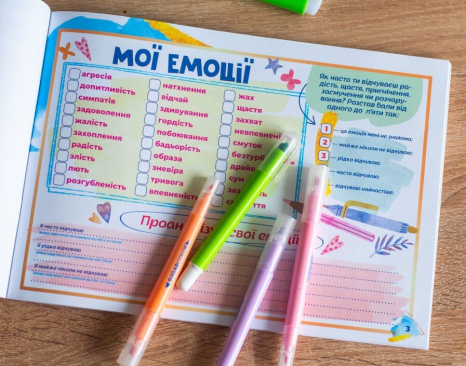 МОЇ ЕМОЦІЇ
агресія
допитливість
симпатія
задоволення
жалість
захоплення
радість
злість
лють
розгубленість
натхнення
відчай
здивування
гордість
побоювання
бадьорість
образа
зневіра
тривога
впевненість
жах
щастя
захват
смуток
сум
Як часто ти відчуваєш ра-
дість, щастя, пригнічення,
засмучення чи розчару-
вання? Розстав бали від
одного до п'яти так:
1 — ця емоція мені не знайома,
2 — майже ніколи не відчуваю;
3 — рідко відчуваю;
— часто відчуваю;
відчуваю найчастіше.
свої емоції
Я часто відчуваю
Я рідко відчуваю
Я майже ніколи не відчуваю
3